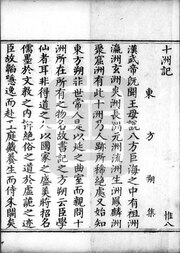 十洲記
東方朔集　惟八
漢武帝既聞王母說八方巨海之中有祖洲
瀛洲玄洲炎洲長洲元洲流洲生洲鳳麟洲
聚窟洲有此十洲乃人跡所稀絕處又始知
東方朔非世常人是以延之曲室而親問十
洲所在所有之物名故書記之方朔云臣學
仙者耳非得道之人以國家之盛美將招名
儒墨於文教之內抑絕俗之道於虛詭之迹
臣故韜隱逸而赴王庭藏養生而侍朱闕矣